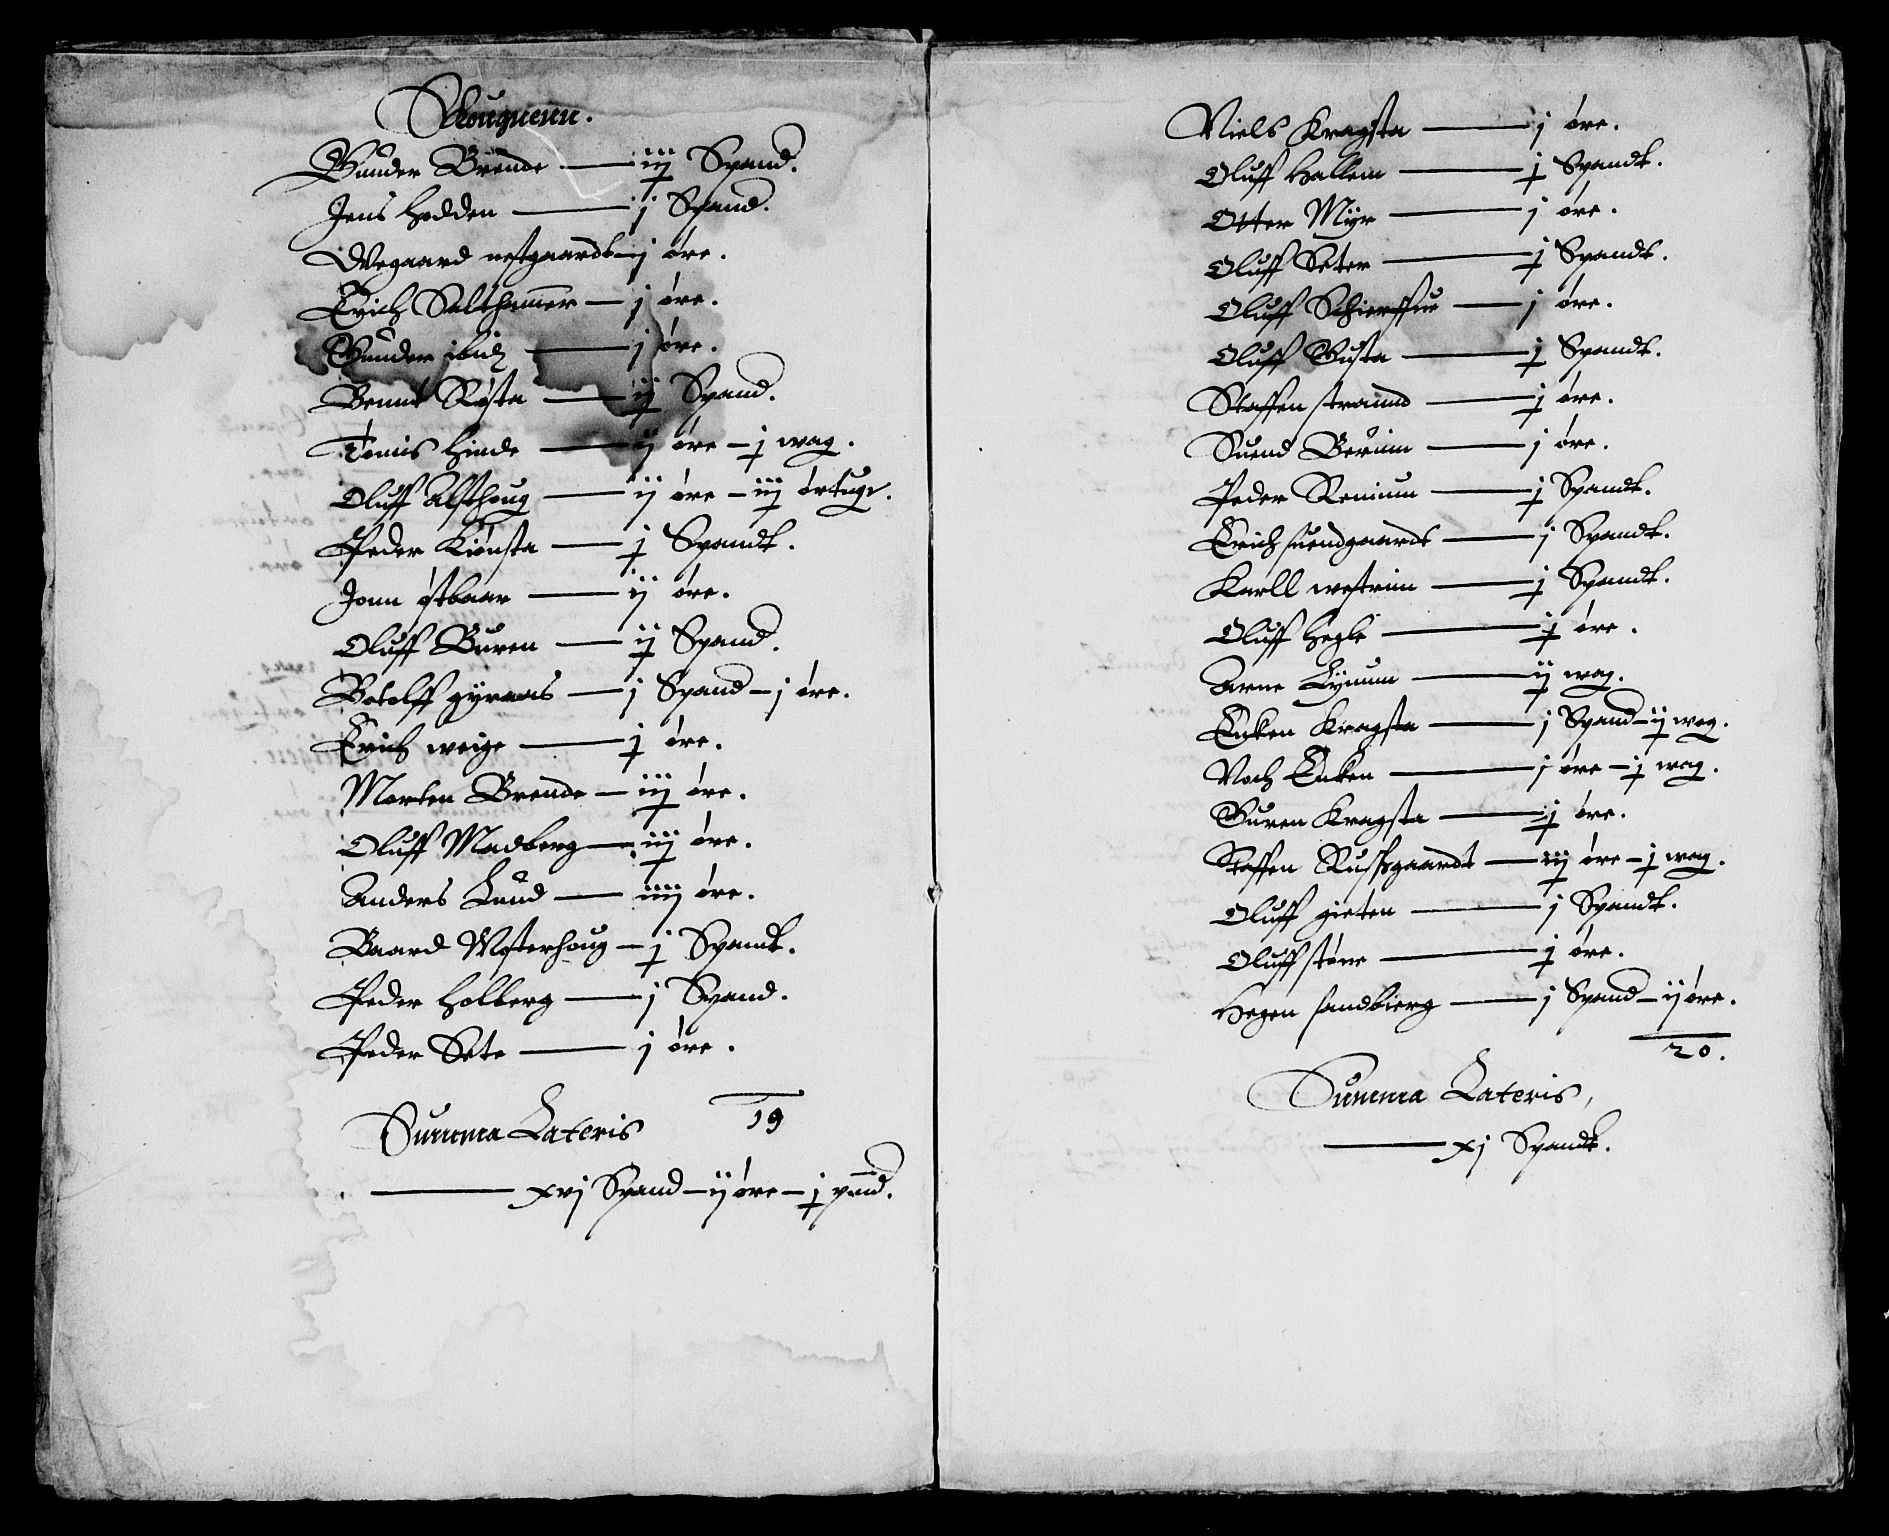 Skougnenn.
Gunder Brende — iij Spand.
Jens Hodden — j Spand.
Wegaard nestgaardt — j øre.
Erich Salthammer — j øre.
Gunder ibid — j øre.
Bennt Røsta — ij Spand.
Tomis Hinde — ij øre — j wag.
Oluff Alsthoug — ij øre — iij ørtuge.
Peder Kiønsta — j Spandt.
Jonn østbaar — ij øre.
Oluff Buren — ij Spand.
Botolff gyraas — j Spand — j øre.
Erich weige — j øre.
Morten Brende — iij øre.
Oluff Madberg — iij øre.
Anders Lund — iiij øre.
Baard Mosterhoug — j Spandt.
Peder Holberg — j Spand.
Peder Sete — j øre.
19
Summa Lateris
— xvj Spand — ij øre — j pund.
Niels Kragsta — j øre.
Oluff Hallem — j Spandt.
Otter Myr — j øre.
Oluff Seter — j Spandt.
Oluff Schierffue — j øre.
Oluff Gusta — j Spandt.
Staffen strannd — j øre.
Suend Berum — j øre.
Peder Renium — j Spandt.
Erich suendgaardt — j Spandt.
Karll westrim — j Spandt.
Oluff Hegle — j øre.
Arne Lynum — ij wag.
Encken Kragsta — j Spand — ij wog.
Noch Encken — j øre — j wag.
Guren Kragsta — j øre.
Staffen Russgaardt — iij øre — j wog.
Oluff gieten — j Spandt.
Oluff støre — j øre.
Hagen sandbierg — j Spand — ij øre.
20.
Summa Lateris,
— xj Spandt.